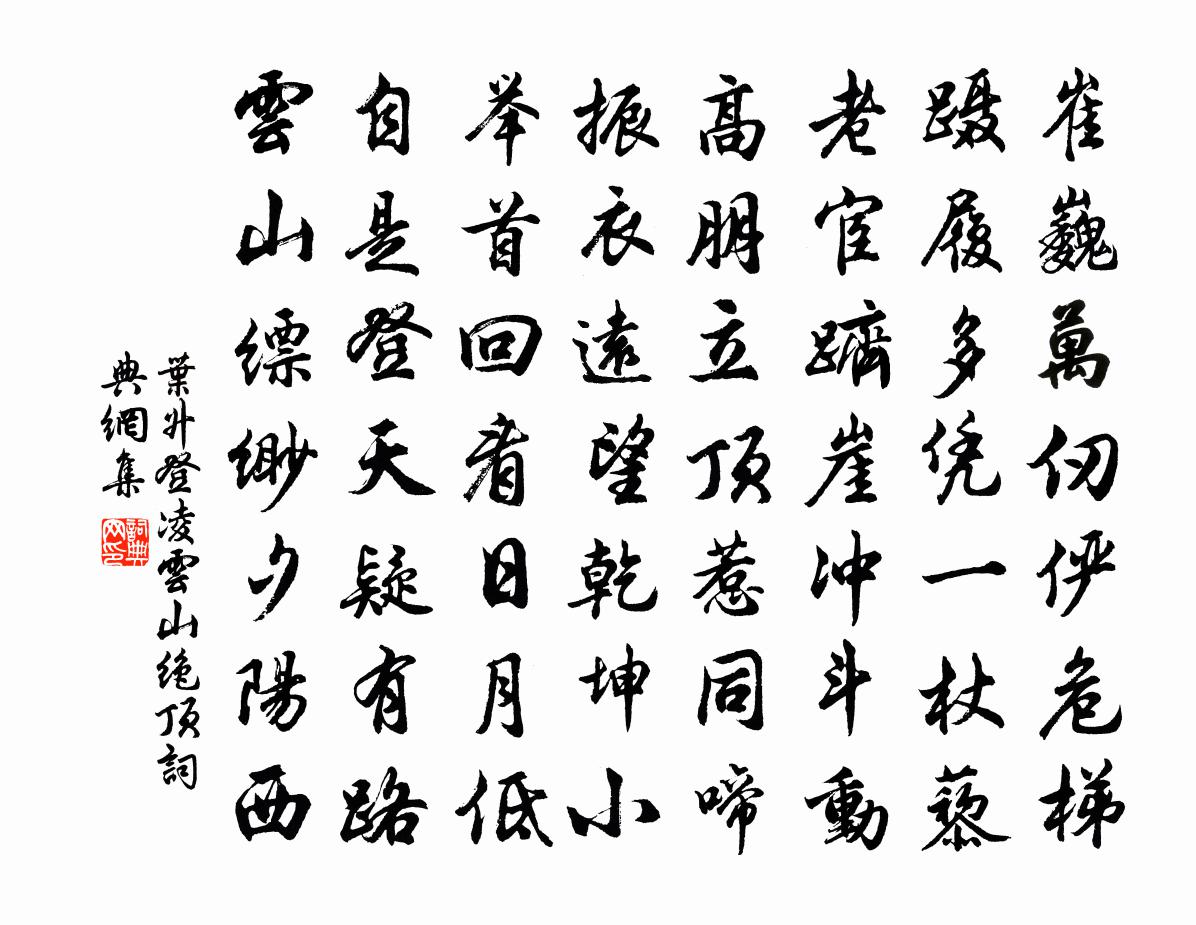 崔巍萬仞俨危梯
蹑履多凭一杖藜
老宦躋崖冲斗動
高朋立頂惹同啼
振衣遠望乾坤小
举首回看日月低
自是登天疑有路
雲山縹緲夕陽西
葉升登凌雲山絶頂詞
典網集
詞典网印